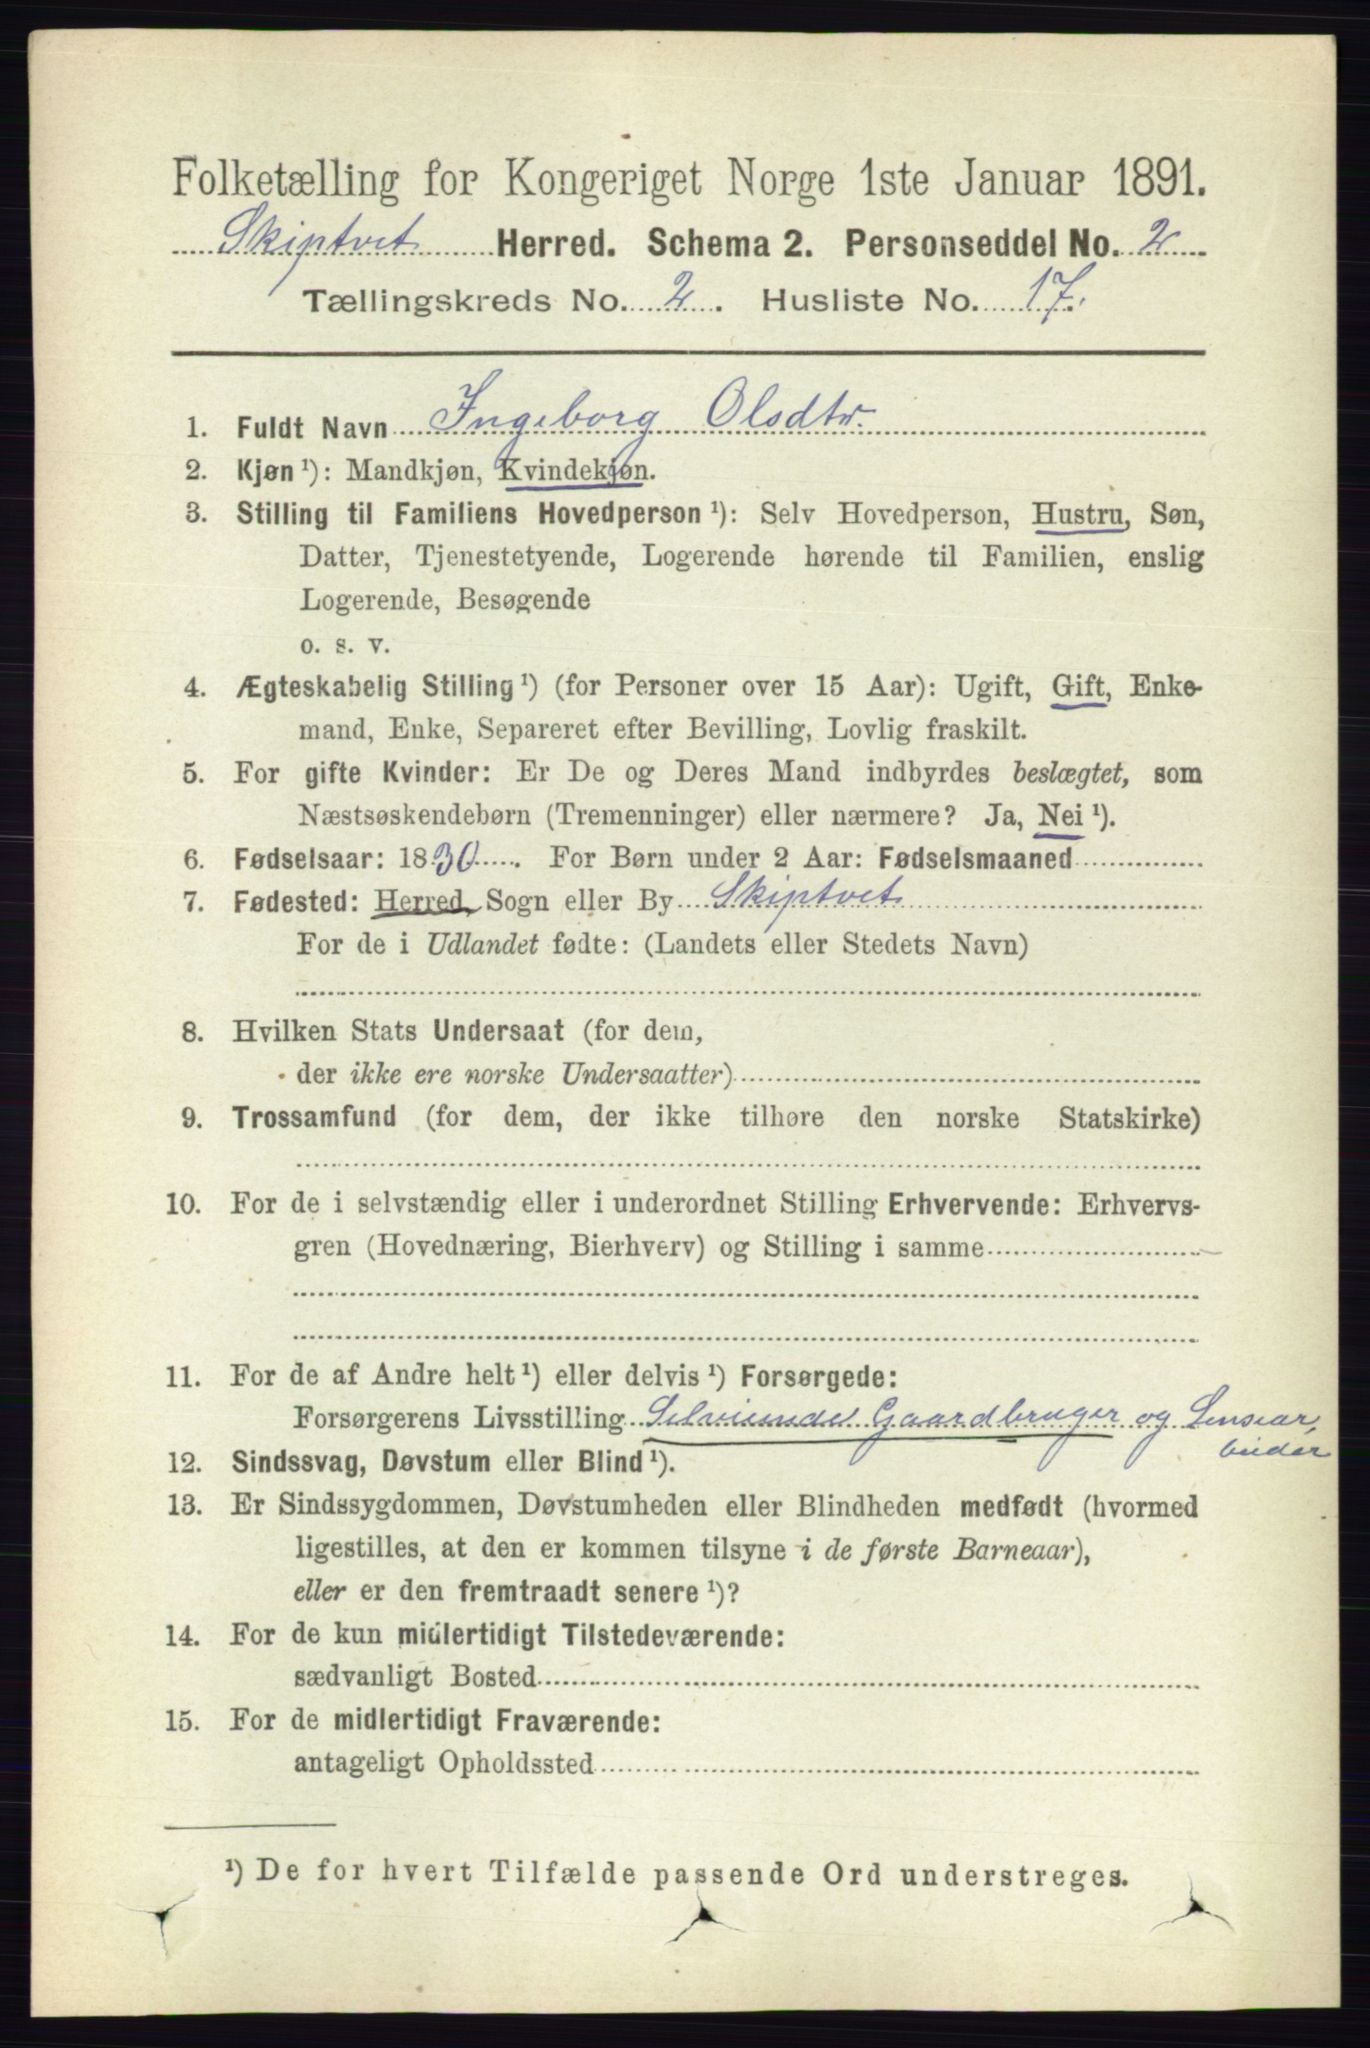 Folketælling for Kongeriget Norge 1ste Januar 1891.
Skiptvet Herred. Schema 2. Personseddel No. 2
Tællingskreds No. 2. Husliste No. 17.
1. Fuldt Navn Ingeborg Olsdtr.
2. Kjøn¹): Mandkjøn, Kvindekjøn.
3. Stilling til Familiens Hovedperson¹): Selv Hovedperson, Hustru, Søn,
Datter, Tjenestetyende, Logerende hørende til Familien, enslig
Logerende, Besøgende
o. s. v.
4. Ægteskabelig Stilling¹) (for Personer over 15 Aar): Ugift, Gift, Enke-
mand, Enke, Separeret efter Bevilling, Lovlig fraskilt.
5. For gifte Kvinder: Er De og Deres Mand indbyrdes beslægtet, som
Næstsøskendebørn (Tremenninger) eller nærmere? Ja, Nei¹).
6. Fødselsaar: 1830. For Børn under 2 Aar: Fødselsmaaned
7. Fødested: Herred, Sogn eller By Skiptvet
For de i Udlandet fødte: (Landets eller Stedets Navn)
8. Hvilken Stats Undersaat (for dem,
der ikke ere norske Undersaatter)
9. Trossamfund (for dem, der ikke tilhøre den norske Statskirke)
10. For de i selvstændig eller i underordnet Stilling Erhvervende: Erhvervs-
gren (Hovednæring, Bierhverv) og Stilling i samme
11. For de af Andre helt¹) eller delvis¹) Forsørgede:
Forsørgerens Livsstilling Selveiende Gaardbruger og
12. Sindssvag, Døvstum eller Blind¹).
13. Er Sindssygdommen, Døvstumheden eller Blindheden medfødt (hvormed
ligestilles, at den er kommen tilsyne i de første Barneaar),
eller er den fremtraadt senere¹)?
14. For de kun midlertidigt Tilstedeværende:
sædvanligt Bosted
15. For de midlertidigt Fraværende:
antageligt Opholdssted
¹) De for hvert Tilfælde passende Ord understreges.